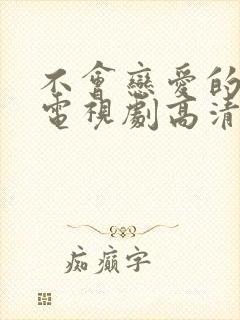 不會戀愛的
電視劇高清
痴癲字